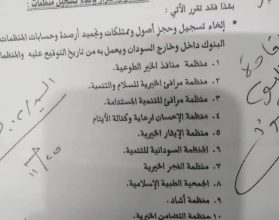 بهذا فقد تقرر الآتي :
إلغاء تسجيل وحجز أصول وممتلكات وتجميد أرصدة وحسابات المنظمات
البنوك داخل وخارج السودان ويعمل به من تاريخ التوقيع عليه والمنظمات
١. منظمة منافذ الخير الطوعية.
٢. منظمة مرافئ الخيرية للسلام والتنمية.
٣. منظمة مرافئ للتنمية المستدامة.
٤. منظمة الإحسان لرعاية وكفالة الأيتام
٥. منظمة الإيثار الخيرية.
٦. المنظمة السودانية للتنمية.
٧. منظمة الفجر الخيرية
٨. الجمعية الطبية الإسلامية.
٩. منظمة أشاد.
١٠. منظمة التضامن الخيرية